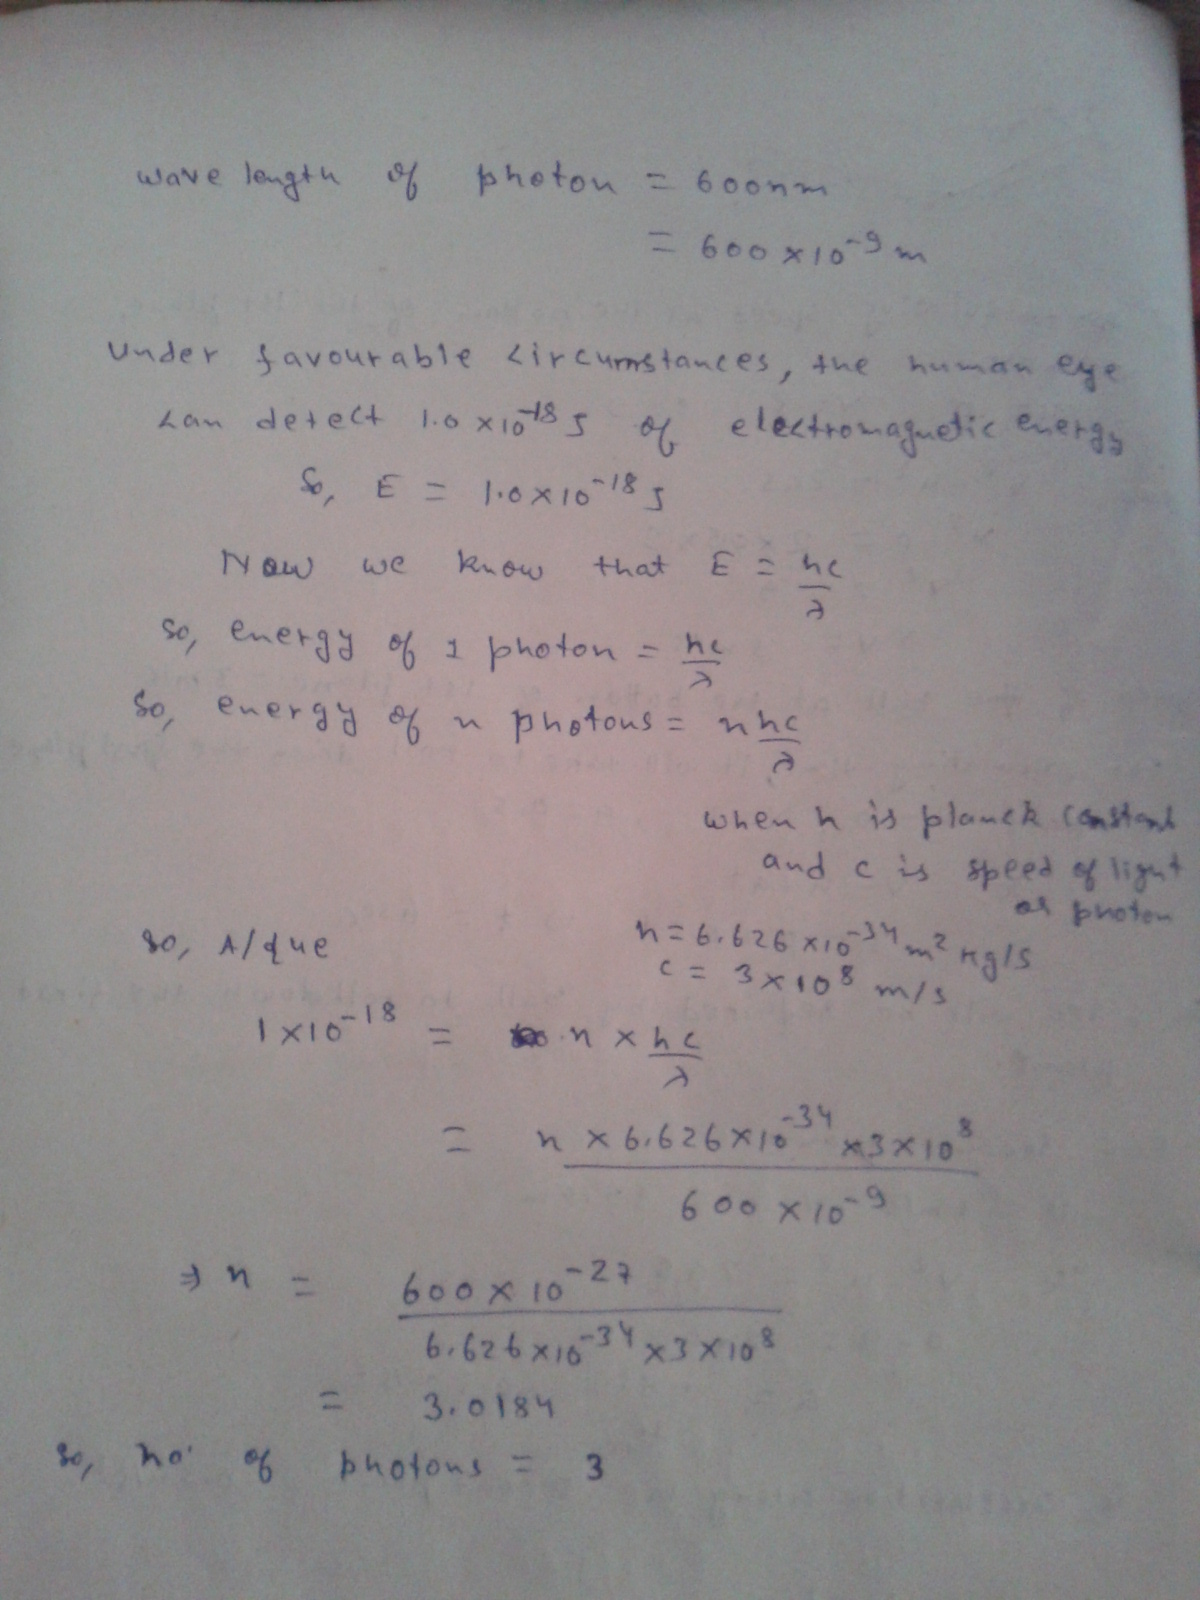 wave length of photon = 600nm
= 600 × 10⁻⁹ m
Under favourable circumstances, the human eye
can detect 1.0 × 10⁻¹⁸ J of electromagnetic energy
So, E = 1.0 × 10⁻¹⁸ J
Now we know that E = hc/λ
so, energy of 1 photon = hc/λ
So, energy of n photons = n hc/λ
when h is planck constant
and c is speed of light
or photon
so, A/que
h = 6.626 × 10⁻³⁴ m² kg/s
c = 3 × 10⁸ m/s
1 × 10⁻¹⁸ = n × hc/λ
= n × 6.626 × 10⁻³⁴ × 3 × 10⁸ / 600 × 10⁻⁹
⇒ n = 600 × 10⁻²⁷ / 6.626 × 10⁻³⁴ × 3 × 10⁸
= 3.0184
So, no. of photons = 3